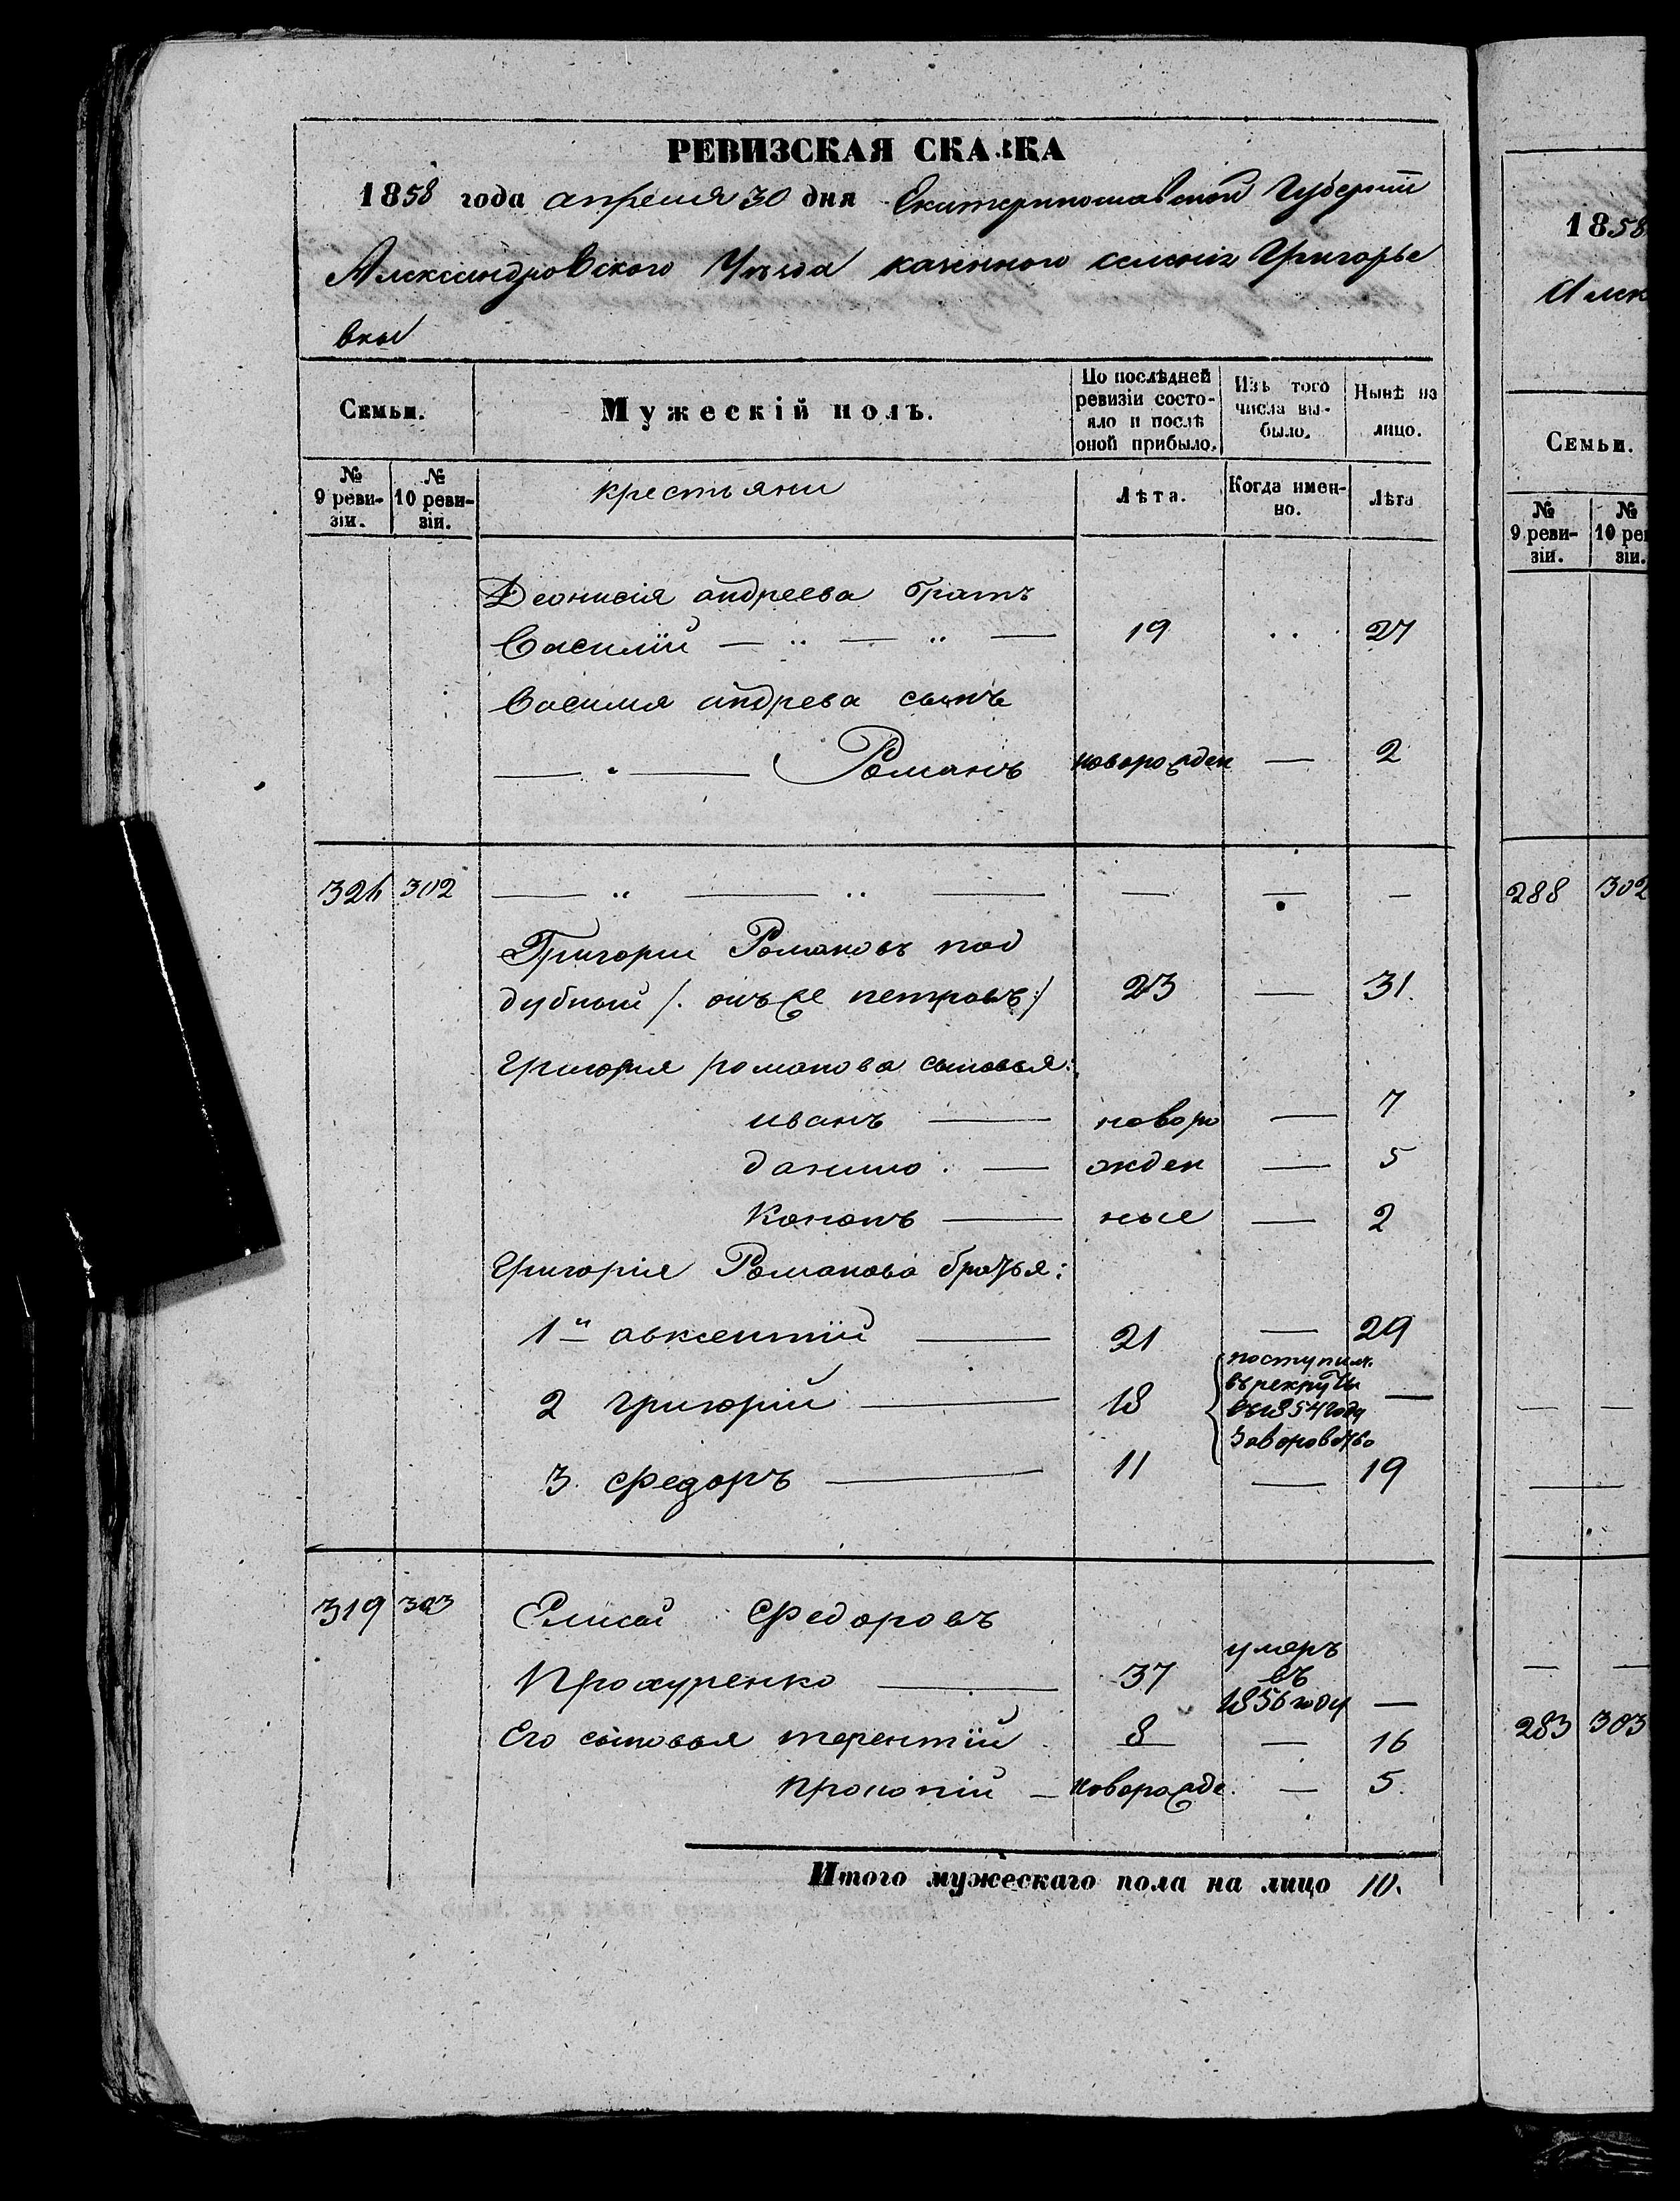 РЕВИЗСКАЯ СКАЗКА
1858 года апреля 30 дня Екатеринославской Губернии
Александровского Уезда казенного селения Григорье
вки
Семьи.
Мужескій полъ.
По послѣдней ревизіи состо-
яло и послѣ
оной прибыло.
Изъ того
числа вы-
было.
Нынѣ на
лицо.
№
9 реви-
зіи.
№
10 реви-
зіи.
крестьяни
Лѣта.
Когда имен-
но.
Лѣта
Деонисія андреева братъ
Василій — „ — „ — 19 . . 27
Василя андрева сынъ
— „ — Романъ новорожден — 2
326 302 — „ — „ — — — —
Григории Романовъ под
дубный /. онъ же петровъ:/ 23 — 31.
Григория романова сыновья:
иванъ — новоро — 7
данило. — жден — 5
Кононъ — ные — 2
Григорія Романова братья:
1й авксентій — 21 — 29
2 григорій — 18 поступил. —
в рекруты
в 1854 году
за воровство
3. Федоръ — 11 — 19
319 303 Елисей Федоровъ
Прохуренко — 37 умеръ
въ
1856 году —
Его сыновья терентій 8 — 16
прокопій — новорожде. — 5.
Итого мужескаго пола на лицо 10.
1858
Алек
Семьи.
№
9 реви-
зіи.
№
10 рев
зіи.
288 302
— —
—
— —
283 303